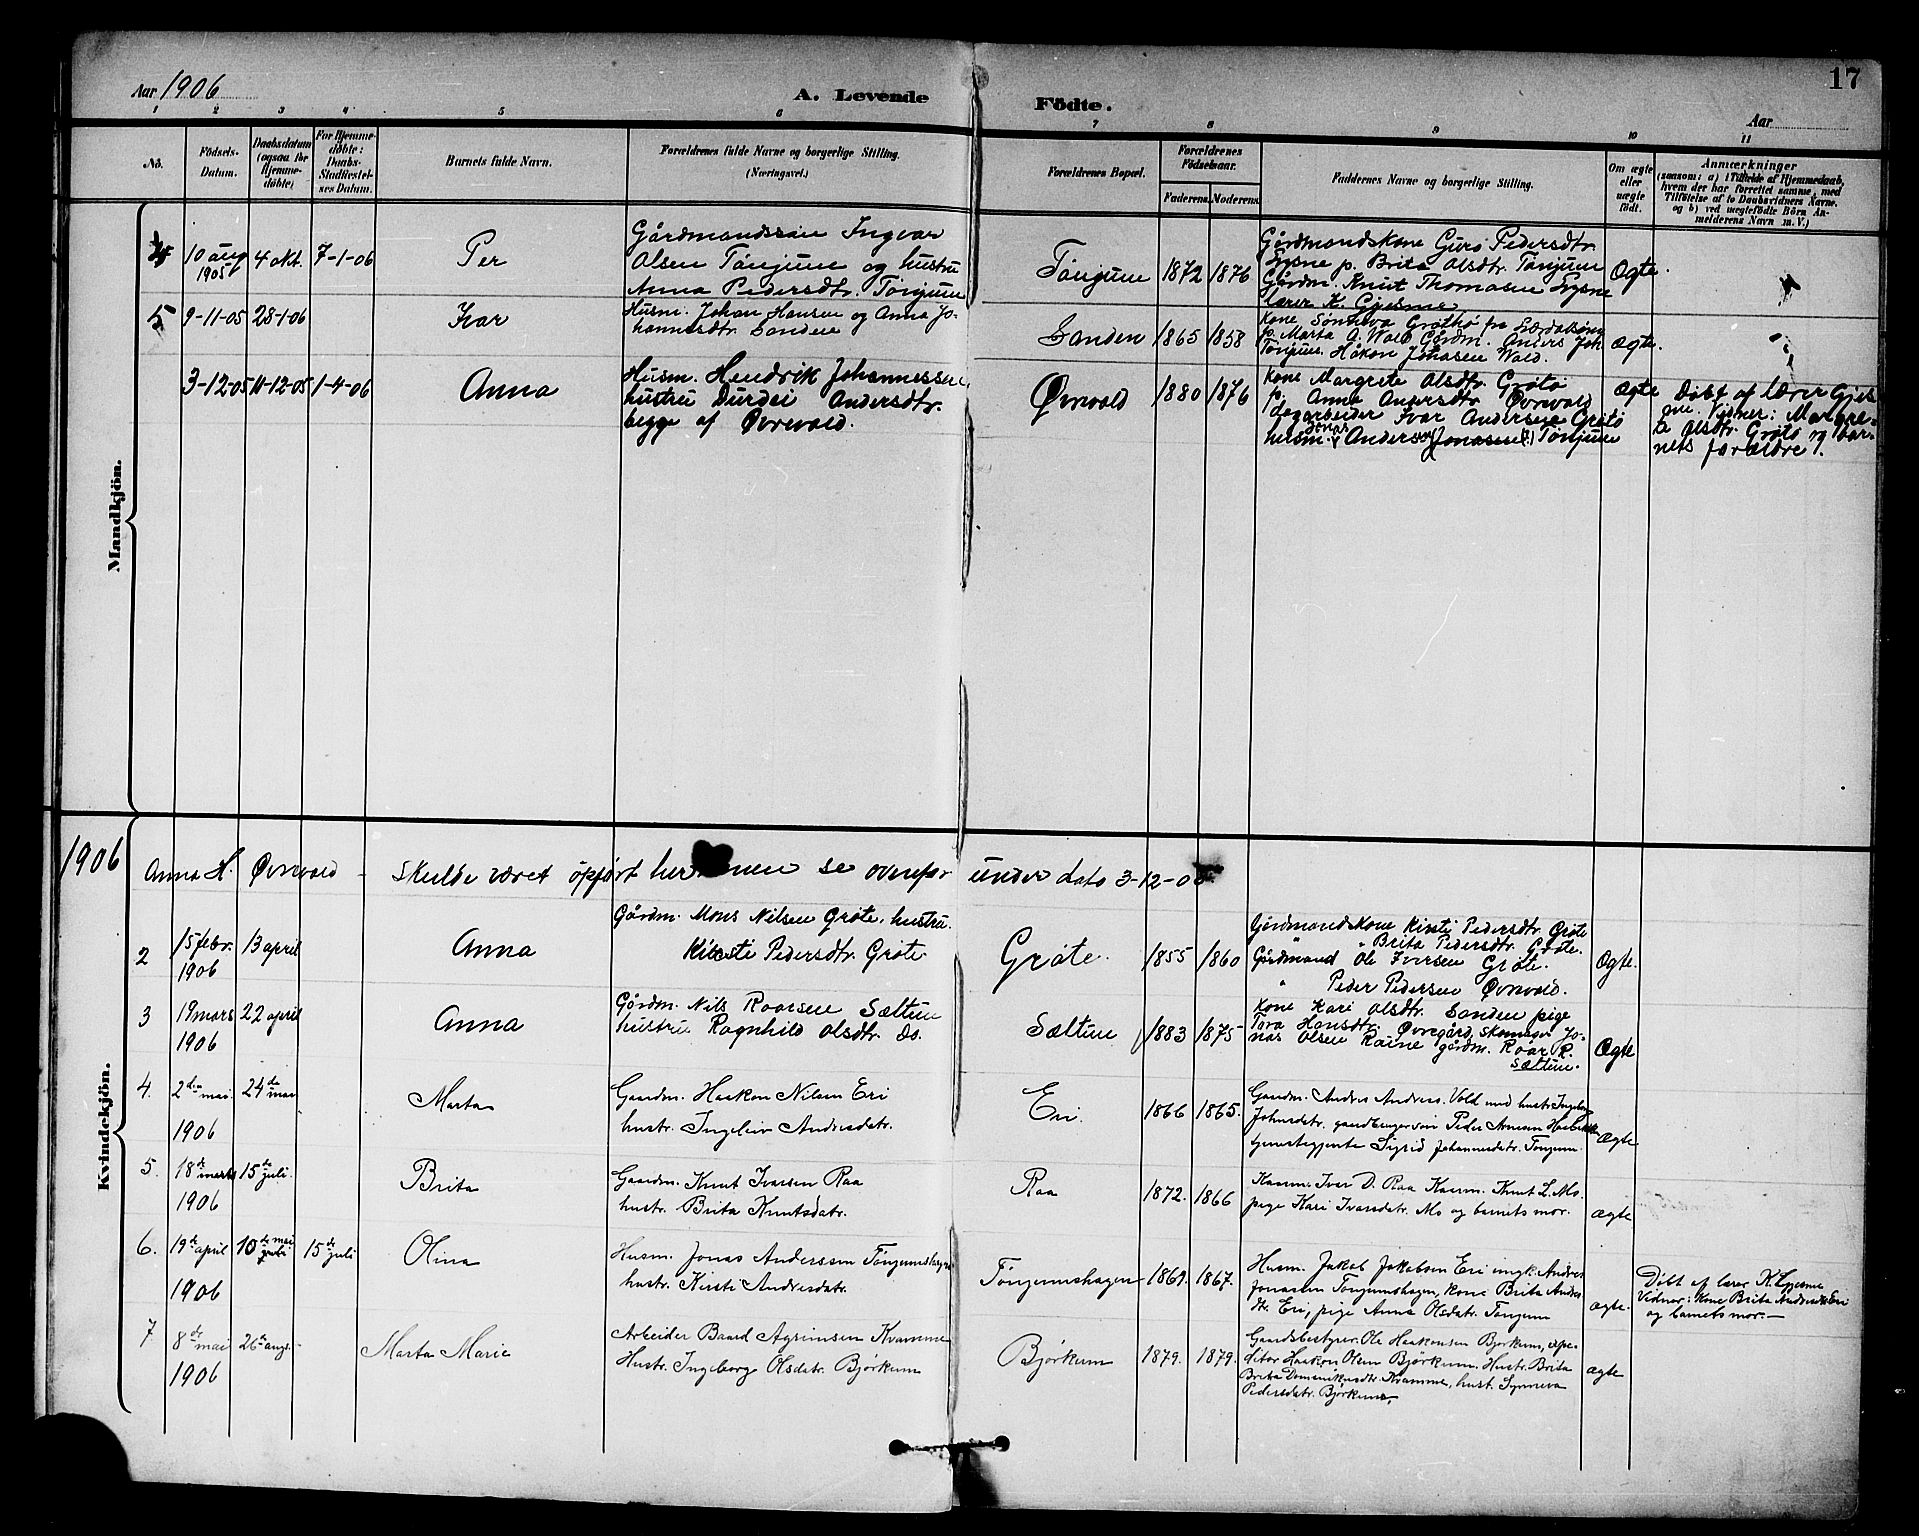 Aar 1906
A. Levende Födte.
17
Aar
1 2 3 4 5 6 7 8 9 10 11
No.
Födsels-
Datum.
Daabsdatum
(ogsaa for
Hjemme-
døbte)
For Hjemme-
døbte:
Daabs-
Stadfæstel-
ses Datum.
Barnets fulde Navn.
Forældrenes fulde Navne og borgerlige Stilling.
(Næringsvei.)
Forældrenes Bopæl.
Forældrenes
Födselsaar.
Faderens. Moderens.
Faddernes Navne og borgerlige Stilling.
Om ægte
eller
uægte
født.
Anmærkninger
(saasom: a) i Tilfælde af Hjemmedaab,
hvem der har forrettet samme, med
Tilföielse af to Daabsvidners Navne,
og b) ved uægtefödte Börn An-
melderens Navn m. V.)
Mandkjön.
4
10 aug
1905
4 okt.
7-1-06
Per
Gårdmandssøn Ingvar
Olsen Tönjum og hustru
Anna Pedersdtr. Tönjum
Tönjum
1872
1876
Gårdmandskone Guro Pedersdtr
Lysne p. Brita Olsdtr. Tönjum
Gårdm. Knut Thomasen Lysne
lærer K. Gjesme
Ægte.
5
9-11-05
28-1-06
Ivar
Husm. Johan Hansen og Anna Jo-
hannesdtr. Sanden
Sanden
1865
1858
Kone Sönneva Gröthö fra Lærdalsöyr
p. Marta A. Wald Gårdm. Anders Joh
Tönjum. Håkon Johasen Wald.
ægte.
3-12-05
11-12-05
1-4-06
Anna
Husm. Hendrik Johannessen
hustru Durdei Andersdtr.
begge af Øvrevald.
Øvrevald
1880
1876
Kone Margrete Olsdtr. Grötö
p. Anna Andersdtr. Øvrevald
dagarbeider Ivar Andersen Grötö
husm. Jonas Anderssen (Jonassen) Tönjum
Ægte
Döbt af lærer Gjes-
me. Vidner: Margre-
te Olsdtr. Grötö og bar-
nets forældre.
Kvindekjön.
1906
Anna H. Øvrevald - skulde været opført her men se ovenfor under dato 3-12-05
2
15 febr.
1906
13 april
Anna
Gårdm. Mons Nilsen Gröte, hustru
Kirsti Pedersdtr. Gröte
Gröte.
1855
1860
Gårdmandskone Kirsti Pedersdtr. Gröte
" Brita Pedersdtr. Gröte.
Gårdmand Ole Iversen Gröte.
" Peder Pedersen Øvrevald.
Ægte.
3
19 mars
1906
22 april
Anna
Gårdm. Nils Roarsen Sæltun
hustru Ragnhild Olsdtr. do.
Sæltun
1883
1875
Kone Kari Olsdtr. Sanden pige
Tora Hansdtr. Øvregård, skomager Jo-
nas Olsen Raine gårdm. Roar R.
Sæltun.
Ægte
4.
2den mai
1906
24de mai
Marta
Gaardm. Haakon Nilsen Eri
hustr. Ingeleiv Andresdatr.
Eri
1866
1865.
Gaardm. Andres Andress. Vold med hustr. Ingebor
Johnsdatr. gaardbrugersøn Peder Amman
tjenestegjente Sigrid Johannesdatr. Tønjum
ægte
5.
18de marts
1906
15de juli.
Brita
Gaardm. Knut Ivarsen Raa
hustr. Brita Knutsdatr.
Raa
1872.
1866
Kaarm. Ivar D. Raa Kaarm. Knut L. Mo.
pige Kari Ivarsdatr. Mo og barnets mor.
ægte
6.
19de april
1906
10de mai
15de juli
Olina
Husm. Jonas Anderssen Tønjumshagen
hustr. Kirsti Andresdatr.
Tønjumshagen
1869.
1867.
Husm. Jakob Jakobsen Eri ungk. Andres
Jonassen Tønjumshagen, kone Brita Andres
dtr. Eri, pige Anna Olsdatr. Tønjum
ægte.
Döbt af lærer K. Gjesme
Vidner: Kone Brita Andresdtr Eri
og barnets mor.—
7
8de mai
1906
26de aug.
Marta Marie
Arbeider Baard Agrimsen Kvamme
Hustr. Ingeborg Olsdatr. Bjørkum
Bjørkum
1879.
1879.
Gaardsbestyrer Ole Haakonsen Bjørkum, expe-
ditør Haakon Olsen Bjørkum. Hustr. Brita
Brita Domenikusdtr. Kvamme, hust. Synneva
Pedersdatr. Bjørkum.
ægte